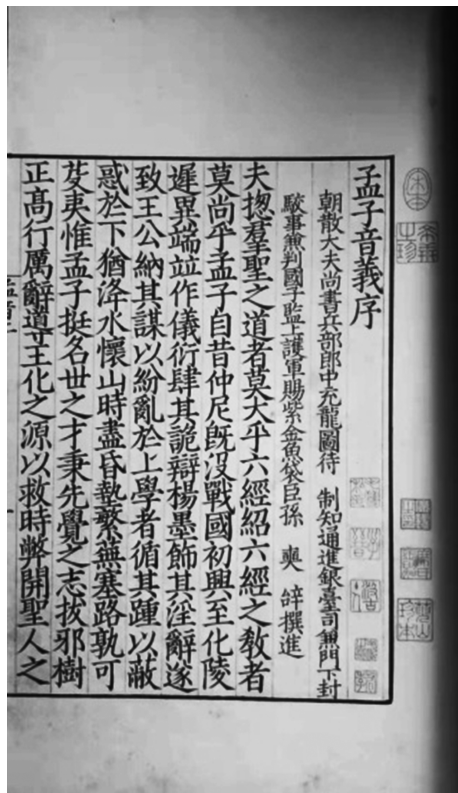 孟子音義序
朝散大夫尚書兵部郎中充龍圖待　制知通進銀臺司兼門下封
駮事兼判國子監上護軍賜紫金魚袋臣孫　奭　等撰進
夫揔羣聖之道者莫大乎六經紹六經之敎者
莫尚乎孟子自昔仲尼旣沒戰國初興至化陵
遲異端竝作儀衍肆其詭辯楊墨飾其淫辭遂
致王公納其謀以紛亂於上學者循其踵以蔽
惑於下猶洚水懷山時盡昏墊繁蕪塞路孰可
芟夷惟孟子挺名世之才秉先覺之志拔邪樹
正髙行厲辭導王化之源以救時弊開聖人之